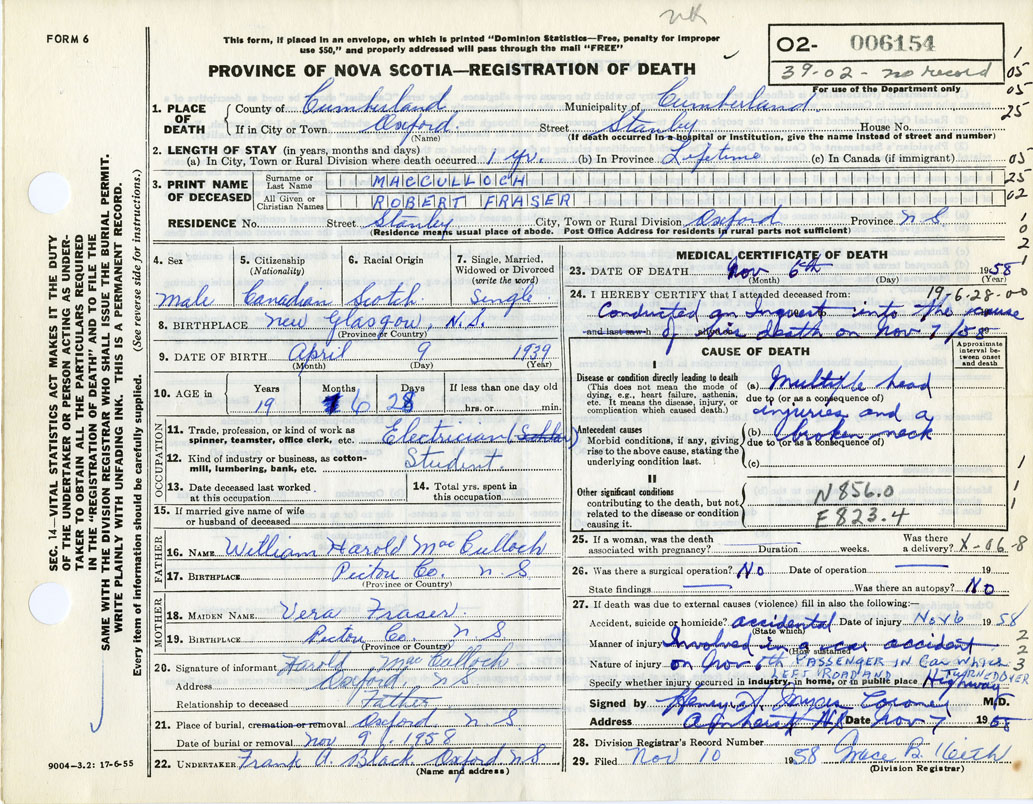 nk
FORM 6
This form, if placed in an envelope, on which is printed "Dominion Statistics—Free, penalty for improper
use $50," and properly addressed will pass through the mail "FREE"
PROVINCE OF NOVA SCOTIA—REGISTRATION OF DEATH
02- 006154
39-02 - no record
For use of the Department only
1
05
05
25
05
25
02
1
0
2
1. PLACE OF DEATH
County of Cumberland Municipality of Cumberland
If in City or Town Oxford. Street Stanley House No.
(Name) (If death occurred in a hospital or institution, give the name instead of street and number)
2. LENGTH OF STAY (in years, months and days)
(a) In City, Town or Rural Division where death occurred 1 yr. (b) In Province Lifetime (c) In Canada (if immigrant)
3. PRINT NAME OF DECEASED
Surname or Last Name MACCULLOCH
All Given or Christian Names ROBERT FRASER
RESIDENCE No. Street Stanley City, Town or Rural Division Oxford Province N S
(Residence means usual place of abode. Post Office Address for residents in rural parts not sufficient)
4. Sex
Male
5. Citizenship
(Nationality)
Canadian
6. Racial Origin
Scotch.
7. Single, Married,
Widowed or Divorced
(write the word)
Single
8. BIRTHPLACE New Glasgow, N.S.
(Province or Country)
9. DATE OF BIRTH April 9 1939
(Month) (Day) (Year)
10. AGE in
Years Months Days If less than one day old
19 6 28 hrs. or min.
OCCUPATION
11. Trade, profession, or kind of work as
spinner, teamster, office clerk, etc. Electrician (Scholar)
12. Kind of industry or business, as cotton-
mill, lumbering, bank, etc. Student.
13. Date deceased last worked
at this occupation
14. Total yrs. spent in
this occupation
15. If married give name of wife
or husband of deceased
FATHER
16. NAME William Harold MacCulloch
17. BIRTHPLACE Pictou Co. N S
(Province or Country)
MOTHER
18. MAIDEN NAME Vera Fraser.
19. BIRTHPLACE Pictou Co. N S
(Province or Country)
20. Signature of informant Harold MacCulloch
Address Oxford N S
Relationship to deceased Father
21. Place of burial, cremation or removal Oxford. N S
Date of burial or removal Nov 9 1958
22. UNDERTAKER Frank A. Black Oxford NS
(Name and address)
MEDICAL CERTIFICATE OF DEATH
23. DATE OF DEATH Nov 6th 1958
(Month) (Day) (Year)
24. I HEREBY CERTIFY that I attended deceased from: 19-6-28-00
Conducted an Inquest into the cause
and last saw h alive on
of his death on Nov 7/58
CAUSE OF DEATH
Approximate
interval be-
tween onset
and death
I
Disease or condition directly leading to death
(This does not mean the mode of
dying, e.g., heart failure, asthenia,
etc. It means the disease, injury, or
complication which caused death.)
(a) Multiple head
due to (or as a consequence of)
injuries and a
Antecedent causes
Morbid conditions, if any, giving
rise to the above cause, stating the
underlying condition last.
(b) broken neck
due to (or as a consequence of)
(c)
II
Other significant conditions
contributing to the death, but not
related to the disease or condition
causing it.
N856.0
E823.4
1
1
1
25. If a woman, was the death
associated with pregnancy? Duration weeks.
Was there
a delivery? X-06-8
26. Was there a surgical operation? No Date of operation 19
State findings Was there an autopsy? No
27. If death was due to external causes (violence) fill in also the following:—
Accident, suicide or homicide? accidental Date of injury Nov 6 1958
(State which)
Manner of injury Involved in a car accident
(How sustained)
Nature of injury on Nov 6th PASSENGER IN CAR WHICH
LEFT ROAD AND TURNED OVER
Specify whether injury occurred in industry, in home, or in public place Highway
2
2
3
Signed by Coroner M.D.
Address Amherst NS Date Nov 7 1958
28. Division Registrar's Record Number
29. Filed Nov 10 1958
(Division Registrar)
SEC. 14—VITAL STATISTICS ACT MAKES IT THE DUTY
OF THE UNDERTAKER OR PERSON ACTING AS UNDER-
TAKER TO OBTAIN ALL THE PARTICULARS REQUIRED
IN THE "REGISTRATION OF DEATH" AND TO FILE THE
SAME WITH THE DIVISION REGISTRAR WHO SHALL ISSUE THE BURIAL PERMIT.
WRITE PLAINLY WITH UNFADING INK. THIS IS A PERMANENT RECORD.
Every item of information should be carefully supplied. (See reverse side for instructions.)
9004—3.2: 17-6-55